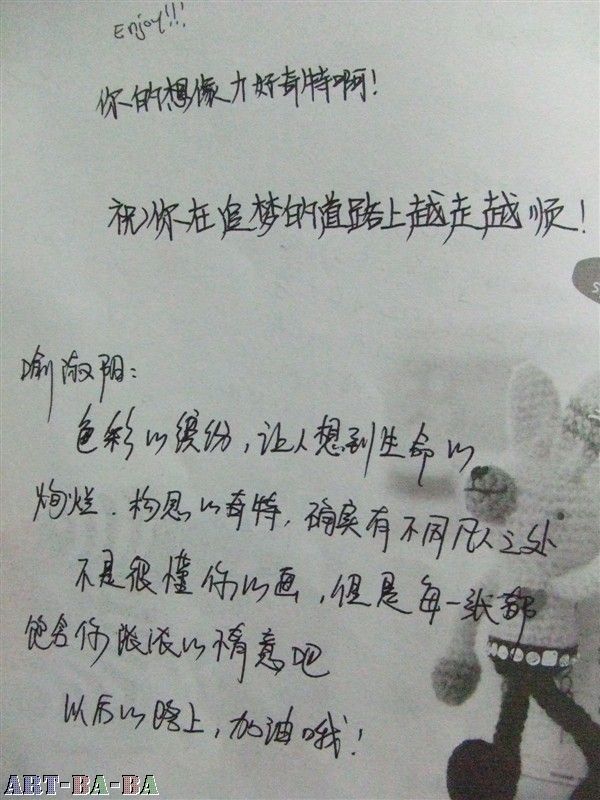 Enjoy!!!
你的想像力好奇特啊!
祝你在追梦的道路上越走越顺!
喻淑阳:
色彩的缤纷,让人想到生命的
炯烂.构思的奇特,确实有不同凡人之处
不是很懂你的画,但是每一纸都
饱含你浓浓的情意吧
以后的路上,加油哦!
ART-BA-BA